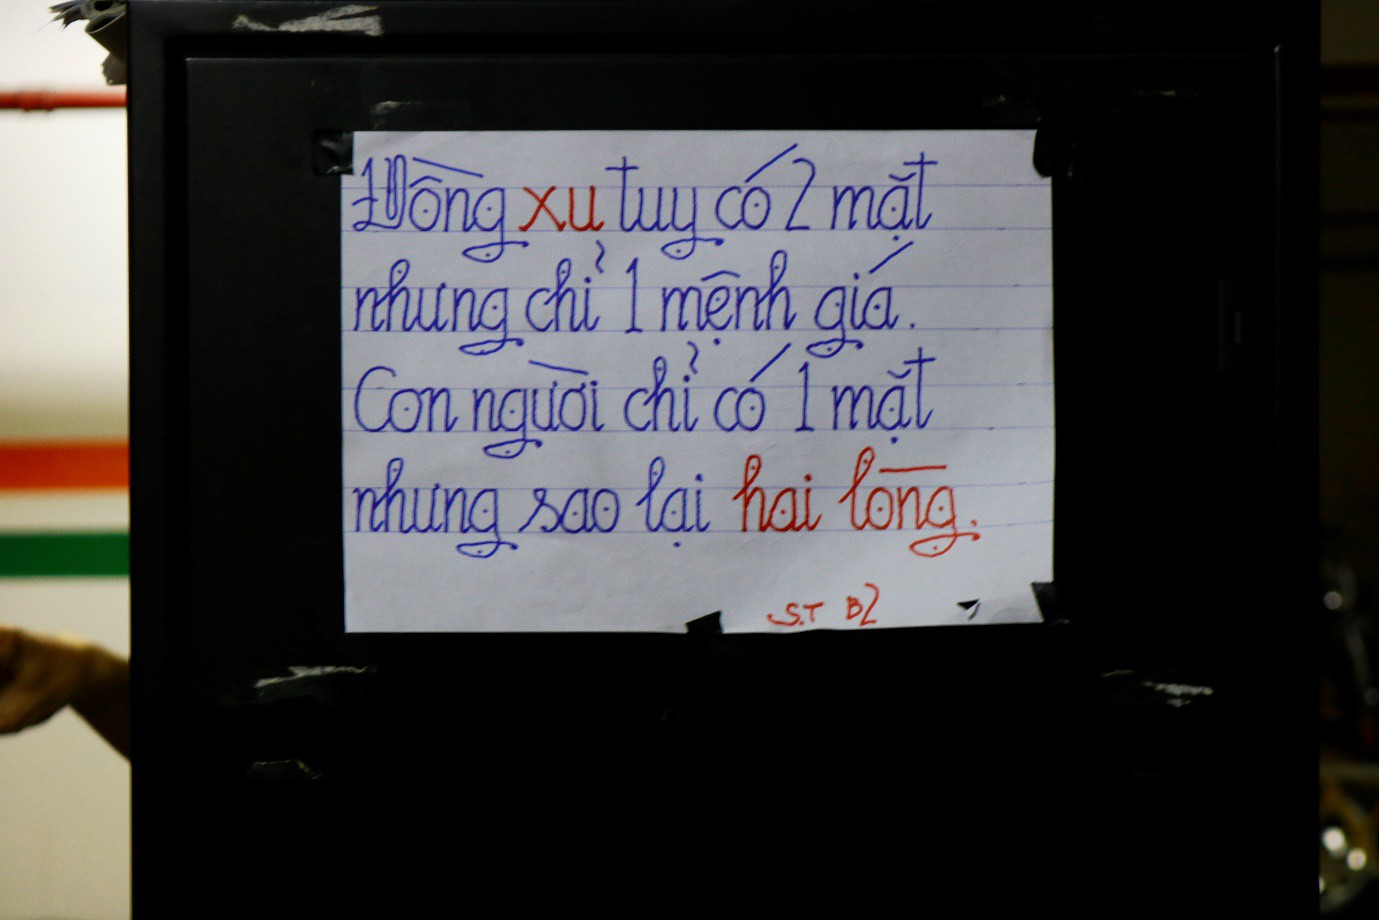 Đồng xu tuy có 2 mặt
nhưng chỉ 1 mệnh giá.
Con người chỉ có 1 mặt
nhưng sao lại hai lòng.
S.T B2